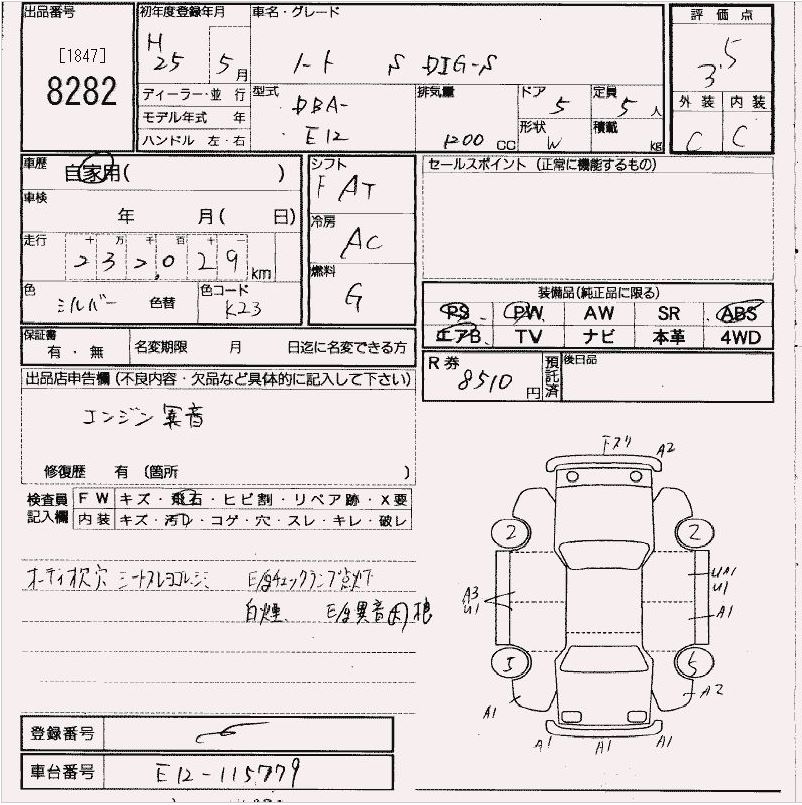 出品番号
[1847]
8282
初年度登録年月
H
25 5月
ディーラー・並 行
モデル年式 年
ハンドル 左・右
車名・グレード
ノート S DIG-S
型式
DBA-
E12
排気量
1200 CC
ドア
5
形状
W
定員
5 人
積載
kg
評 価 点
3.5
外 装 内 装
C C
車歴
自家用( )
車検
年 月( 日)
走行
十 万 千 百 十 一
232,029 km
色
シルバー 色替
色コード
K23
シフト
F AT
冷房
AC
燃料
G
セールスポイント (正常に機能するもの)
装備品(純正品に限る)
PS PW AW SR ABS
エアB TV ナビ 本革 4WD
保証書
有・無
名変期限 月 日迄に名変できる方
R券
8510 円
預託済
後日品
出品店申告欄(不良内容・欠品など具体的に記入して下さい)
エンジン異音
修復歴 有 (箇所 )
検査員
記入欄
FW キズ・飛石・ヒビ割・リペア跡・X要
内装 キズ・汚れ・コゲ・穴・スレ・キレ・破レ
E/gチェックランプ点灯
白煙 E/g異音
下スリ A2
2 2
A3
U1
UA1
U1
A1
5 5
A1
A2
A1 A1 A1
登録番号
車台番号
E12-115779